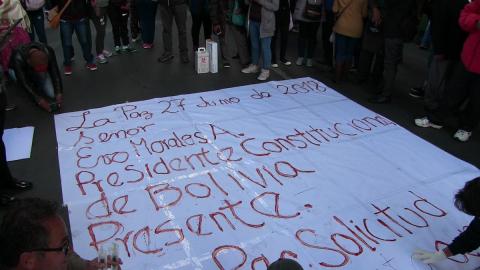 La Paz 27 Junio de 2018
Señor
Evo Morales A.
Presidente Constitucional
de Bolivia
Presente.
Por Solicitud